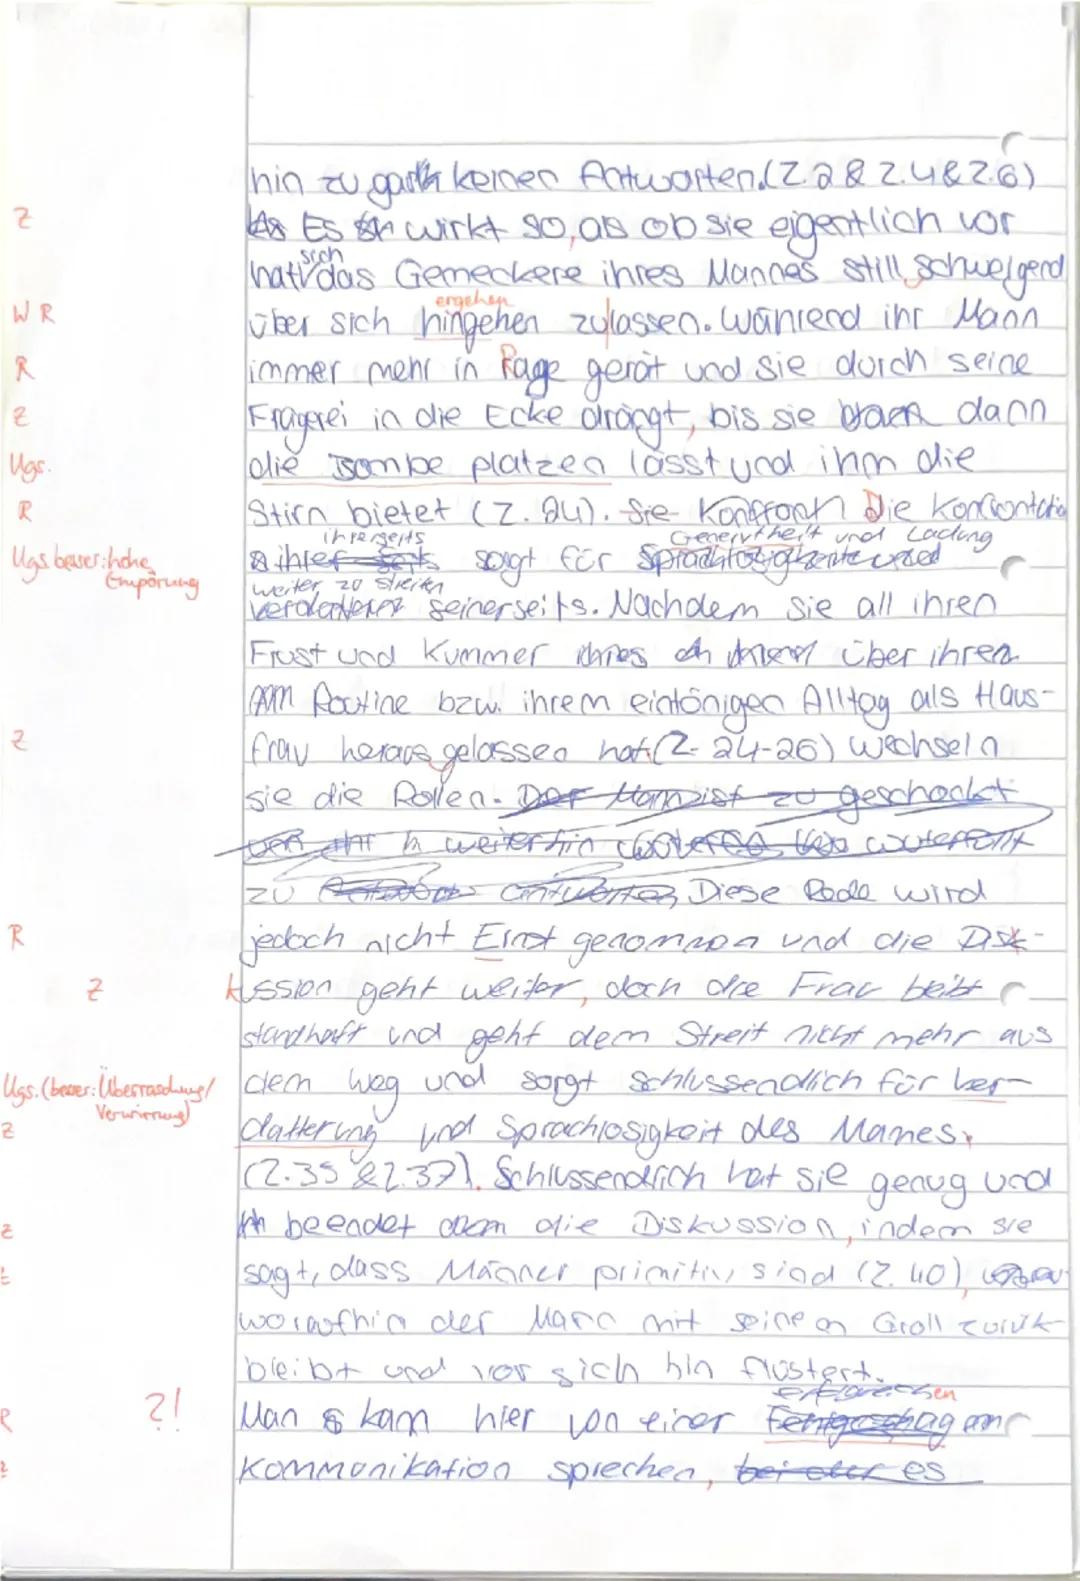 hin zu gar keinen Antworten. (Z.2 & Z.4 & Z.6)
Z
Es wirkt so, als ob sie eigentlich vor
sich
hat das Gemeckere ihres Mannes still schweigend
ergehen
W R
über sich hingehen zulassen. Während ihr Mann
R
immer mehr in Rage gerät und sie durch seine
Z
Fragerei in die Ecke drängt, bis sie dann
Ugs.
die Bombe platzen lässt und ihm die
R
Stirn bietet (Z. 24). Sie Konfront Die Konfrontatio
ihrerseits
Generviertheit und Ladung
Ugs. besser: hohe
Empörung
sorgt für
weiter zu streiten
seinerseits. Nachdem sie all ihren
Frust und Kummer über ihren
Routine bzw. ihrem eintönigen Alltag als Haus-
Z
frau heraus gelassen hat (Z. 24-26) wechseln
sie die Rollen. Der Mann ist zu geschockt
weiterhin
zu antworten Diese Rede wird
R
jedoch nicht Ernst genommen und die Disk-
Z
kussion geht weiter, doch die Frau beibt
standhaft und geht dem Streit nicht mehr aus
Ugs. (besser: Überraschung/
Verwirrung)
dem Weg und sorgt schlussendlich für Ver-
Z
datterung und Sprachlosigkeit des Manes.
(Z.35 & Z.37). Schlussendlich hat sie genug und
Z
beendet die Diskussion, indem sie
Z
sagt, dass Männer primitiv sind (Z. 40),
woraufhin der Mann mit seinen Groll zurük
bleibt und vor sich hin flüstert.
?!
R
Man kann hier von einer
Z
Kommunikation sprechen, es